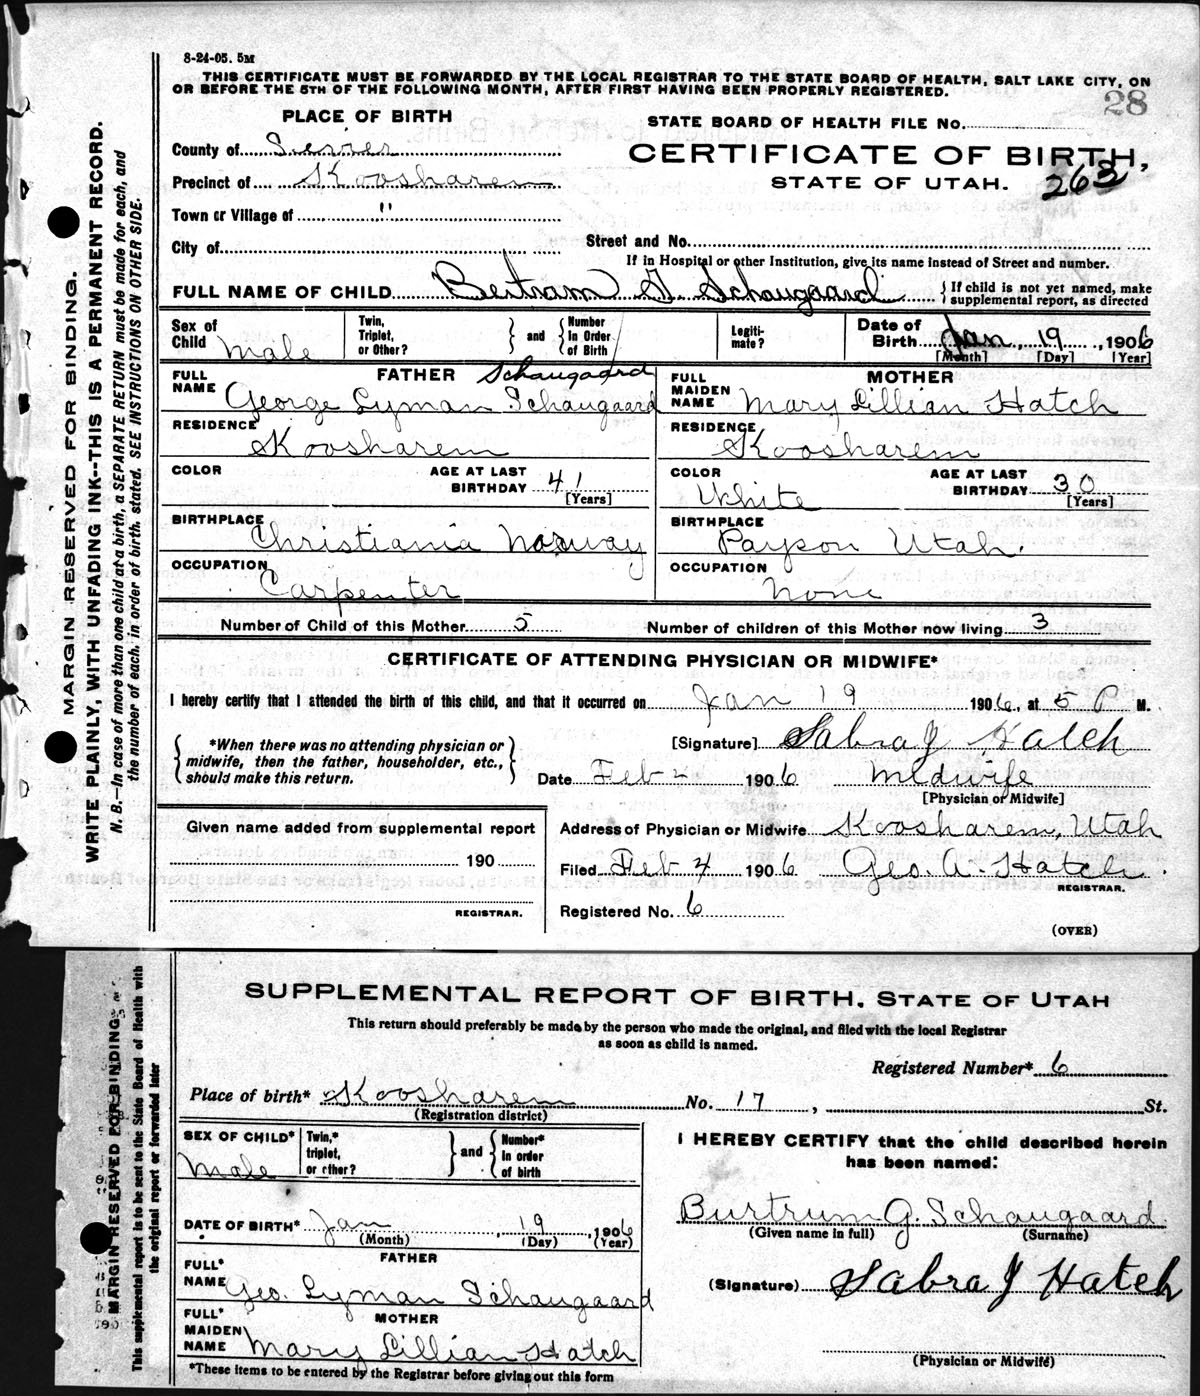 8-24-05. 5M
THIS CERTIFICATE MUST BE FORWARDED BY THE LOCAL REGISTRAR TO THE STATE BOARD OF HEALTH, SALT LAKE CITY, ON
OR BEFORE THE 5TH OF THE FOLLOWING MONTH, AFTER FIRST HAVING BEEN PROPERLY REGISTERED.
28
PLACE OF BIRTH
STATE BOARD OF HEALTH FILE No.
County of Sevier
CERTIFICATE OF BIRTH,
Precinct of Koosharem
STATE OF UTAH. 263
Town or Village of "
City of
Street and No.
If in Hospital or other Institution, give its name instead of Street and number.
FULL NAME OF CHILD Bertram G Schaugaard { If child is not yet named, make
supplemental report, as directed
Sex of Child Male
Twin, Triplet, or Other? } and { Number In Order of Birth
Legiti-mate?
Date of Birth Jan 19, 1906
[Month] [Day] [Year]
FATHER Schaugaard
FULL NAME George Lyman Schaugaard
MOTHER
FULL MAIDEN NAME Mary Lillian Hatch
RESIDENCE Koosharem
RESIDENCE Koosharem
COLOR AGE AT LAST BIRTHDAY 41 [Years]
COLOR White AGE AT LAST BIRTHDAY 30 [Years]
BIRTHPLACE Christiania Norway
BIRTHPLACE Payson Utah.
OCCUPATION Carpenter
OCCUPATION None
Number of Child of this Mother 5 Number of children of this Mother now living 3
CERTIFICATE OF ATTENDING PHYSICIAN OR MIDWIFE*
I hereby certify that I attended the birth of this child, and that it occurred on Jan 19 1906, at 5 P M.
{ *When there was no attending physician or
midwife, then the father, householder, etc.,
should make this return. }
[Signature] Sabra J Hatch
Date Feb 4 1906 Midwife
[Physician or Midwife]
Given name added from supplemental report
190
REGISTRAR.
Address of Physician or Midwife Koosharem, Utah
Filed Feb 4 1906 Geo. A. Hatch.
REGISTRAR.
Registered No. 6
(OVER)
MARGIN RESERVED FOR BINDING.
WRITE PLAINLY, WITH UNFADING INK--THIS IS A PERMANENT RECORD.
N. B.—In case of more than one child at a birth, a SEPARATE RETURN must be made for each, and
the number of each, in order of birth, stated. SEE INSTRUCTIONS ON OTHER SIDE.
SUPPLEMENTAL REPORT OF BIRTH, STATE OF UTAH
This return should preferably be made by the person who made the original, and filed with the local Registrar
as soon as child is named.
Registered Number* 6
Place of birth* Koosharem No. 17, St.
(Registration district)
SEX OF CHILD* Male
Twin,* triplet, or other? } and { Number* in order of birth
I HEREBY CERTIFY that the child described herein
has been named:
DATE OF BIRTH* Jan 19, 1906
(Month) (Day) (Year)
Burtrum G. Schaugaard
(Given name in full) (Surname)
FATHER
FULL* NAME Geo. Lyman Schaugaard
(Signature) Sabra J Hatch
MOTHER
FULL* MAIDEN NAME Mary Lillian Hatch
(Physician or Midwife)
*These items to be entered by the Registrar before giving out this form
MARGIN RESERVED FOR BINDING
This supplemental report is to be sent to the State Board of Health with
the original report or forwarded later